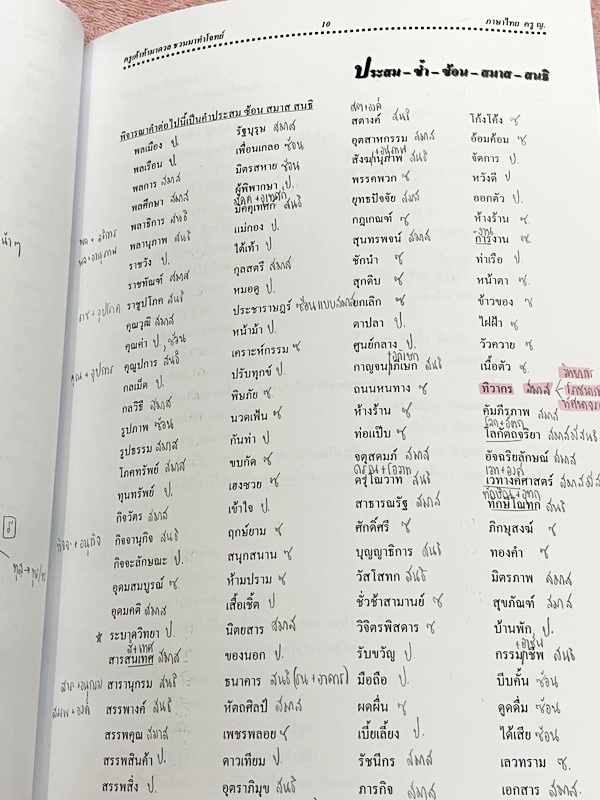 ครูเค้าท้ามาดวล ชวนมาทำโจทย์ 10 ภาษาไทย ครู ญ.
ประสม – ซ้ำ – ซ้อน – สมาส – สนธิ
พิจารณาคำต่อไปนี้เป็นคำประสม ซ้อน สมาส สนธิ
พลเมือง ป.
พลเรือน ป.
พลการ สมาส
พลศึกษา สมาส
พล + อธิการ
พลาธิการ สนธิ
พล + อานุภาพ
พลานุภาพ สนธิ
ราชวัง ป.
ราชทัณฑ์ สมาส
ราช + อุปโภค
ราชูปโภค สนธิ
คุณวุฒิ สมาส
คุณค่า ป, ซ้อน
คุณ + อุปการ
คุณูปการ สนธิ
กลเม็ด ป.
กลวิธี สมาส
รูปภาพ ซ้อน
รูปธรรม สมาส
โภคทรัพย์ สมาส
ทุนทรัพย์ ป.
กิจวัตร สมาส
กิจจะ + อนุกิจ
กิจจานุกิจ สนธิ
กิจจะลักษณะ ป.
อุดมสมบูรณ์ ซ.
อุดมคติ สมาส
★ ระบาดวิทยา ป.
สารสนเทศ สมาส
สาร + อนุกรม
สารานุกรม สนธิ
สรรพ + องค์
สรรพางค์ สนธิ
สรรพคุณ สมาส
สรรพสินค้า ป.
สรรพสิ่ง ป.
รัฐบุรุษ สมาส
เพื่อนเกลอ ซ้อน
มิตรสหาย ซ้อน
ผู้พิพากษา ป.
มัคคุเทศก์ สนธิ
แม่กอง ป.
ใต้เท้า ป.
กุลสตรี สมาส
หมอดู ป.
ประชาราษฎร์ ซ้อนแบบสมาส
หน้าม้า ป.
เคราะห์กรรม ซ
ปรับทุกข์ ป.
พิษภัย ซ.
นวดเฟ้น ซ.
กันท่า ป
ขบกัด ซ
เฮงซวย ซ.
เข้าใจ ป.
ฤกษ์ยาม ซ
สนุกสนาน ซ
ห้ามปราม ซ
เสื้อเชิ้ต ป.
นิตยสาร สมาส
ของนอก ป.
ธนาคาร สนธิ (ธน + อาคาร)
หัตถศิลป์ สมาส
เพชรพลอย ซ
ดาวเทียม ป.
อุตราภิมุข สนธิ
สต+องค์
สตางค์ สนธิ
อุตสาหกรรม สมาส
สังฆานุภาพ สนธิ
พรรคพวก ซ
ยุทธปัจจัย สมาส
กฎเกณฑ์ ซ
สุนทรพจน์ สมาส
ชักนำ ซ
สุกดิบ ซ
ยกเลิก ซ
ตาปลา ป.
ศูนย์กลาง ป.
+อภิเษก
กาญจนาภิเษก สนธิ
ถนนหนทาง ซ
ห้างร้าน ซ
ท่อแป๊บ ซ
จตุสดมภ์ สมาส
ดรุณ+โอวาท
ดรุโณวาท สนธิ
สาธารณรัฐ สมาส
ศักดิ์ศรี ซ
บุญญาธิการ สนธิ
วัสโสทก สนธิ
ชั่วช้าสามานย์ ซ
วิจิตรพิสดาร ซ
รับขวัญ ป.
มือถือ ป.
ผดผื่น ซ
เบี้ยเลี้ยง ป.
รัชนีกร สมาส
ภารกิจ สมาส
โก้งโค้ง ซ
อ้อมค้อม ซ
จัดการ ป.
หวังดี ป.
ออกตัว ป.
ห้างร้าน ซ
งาน
การงาน ซ
ท่าเรือ ป.
หน้าตา ซ.
ข้าวของ ซ
ไฝฝ้า ซ
วัวควาย ซ
เนื้อตัว ซ
ทิวากร สมาส
คัมภีรภาพ สมาส
โลกัตถจริยา
อัจฉริยลักษณ์ สมาส
เวทางคศาสตร์
ทักษิโณทก สนธิ
ภิกษุสงฆ์ ซ
ทองคำ ซ.
มิตรภาพ สมาส
สุขภัณฑ์ สมาส
บ้านพัก ป.
+อาชีพ
กรรมาชีพ สนธิ
บีบคั้น ซ้อน
ดูดดื่ม ซ้อน
ได้เสีย ซ้อน
เลวทราม ซ.
เอกสาร สมาส